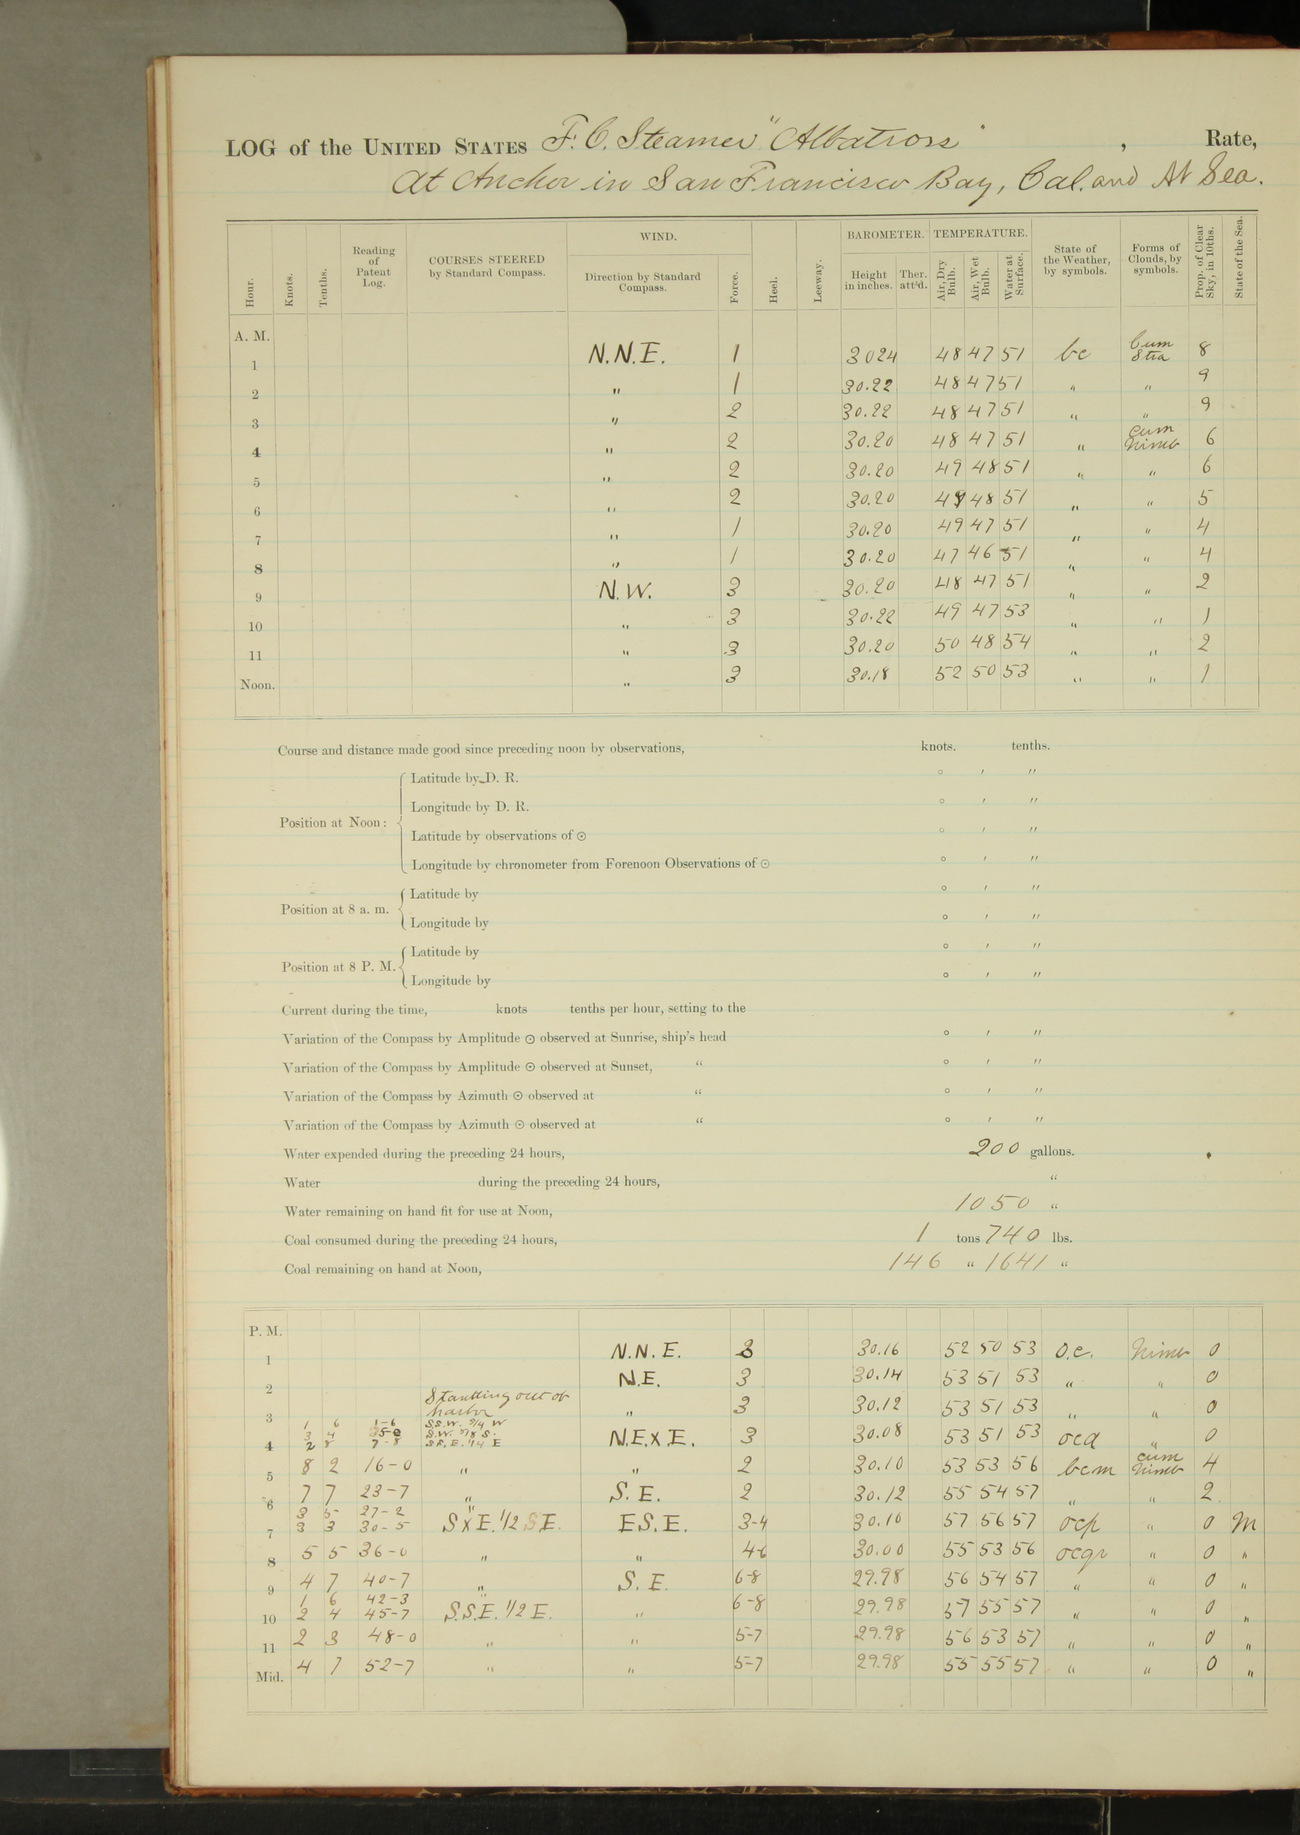 LOG of the UNITED STATES F. C. Steamer "Albatross" , Rate,
At Anchor in San Francisco Bay, Cal. and At Sea.
Hour. Knots. Tenths. Reading of Patent Log. COURSES STEERED by Standard Compass. WIND. Direction by Standard Compass. Force. Heel. Leeway. BAROMETER. Height in inches. Ther. att'd. TEMPERATURE. Air, Dry Bulb. Air, Wet Bulb. Water at Surface. State of the Weather, by symbols. Forms of Clouds, by symbols. Prop. of Clear Sky, in 10ths. State of the Sea.
A. M.
1 N.N.E. 1 30 24 48 47 51 bc Cum Stra 8
2 " 1 30.22 48 47 51 " " 9
3 " 2 30.22 48 47 51 " " 9
4 " 2 30.20 48 47 51 " Cum Nimb 6
5 " 2 30.20 49 48 51 " " 6
6 " 2 30.20 49 48 51 " " 5
7 " 1 30.20 49 47 51 " " 4
8 " 1 30.20 47 46 51 " " 4
9 N.W. 3 30.20 48 47 51 " " 2
10 " 3 30.22 49 47 53 " " 1
11 " 3 30.20 50 48 54 " " 2
Noon. " 3 30.18 52 50 53 " " 1
Course and distance made good since preceding noon by observations, knots. tenths.
Latitude by D. R. ° ′ ″
Longitude by D. R. ° ′ ″
Position at Noon:
Latitude by observations of ⊙ ° ′ ″
Longitude by chronometer from Forenoon Observations of ⊙ ° ′ ″
Latitude by ° ′ ″
Position at 8 a. m.
Longitude by ° ′ ″
Latitude by ° ′ ″
Position at 8 P. M.
Longitude by ° ′ ″
Current during the time, knots tenths per hour, setting to the
Variation of the Compass by Amplitude ⊙ observed at Sunrise, ship's head ° ′ ″
Variation of the Compass by Amplitude ⊙ observed at Sunset, " ° ′ ″
Variation of the Compass by Azimuth ⊙ observed at " ° ′ ″
Variation of the Compass by Azimuth ⊙ observed at " ° ′ ″
Water expended during the preceding 24 hours, 200 gallons.
Water during the preceding 24 hours, "
Water remaining on hand fit for use at Noon, 1050 "
Coal consumed during the preceding 24 hours, 1 tons 740 lbs.
Coal remaining on hand at Noon, 146 " 1641 "
P. M.
1 N.N.E. 3 30.16 52 50 53 o.c. Nimb 0
2 N.E. 3 30.14 53 51 53 " " 0
out of harbor
3 " 3 30.12 53 51 53 " " 0
1 6 1-6 S.S.W. 3/4 W
3 4 5-0 S.W. 7/8 S.
4 2 8 7-8 S.E. 1/4 E N.E.xE. 3 30.08 53 51 53 ocd " 0
5 8 2 16-0 " " 2 30.10 53 53 56 bcm Cum Nimb 4
6 7 7 23-7 " S. E. 2 30.12 55 54 57 " " 2
3 5 27-2 "
7 3 3 30-5 SxE. 1/2 E. ESE. 3-4 30.10 57 56 57 ocp " 0 M
8 5 5 36-0 " " 4-6 30.00 55 53 56 ocqr " 0 "
9 4 7 40-7 " S. E. 6-8 29.98 56 54 57 " " 0 "
1 6 42-3 "
10 2 4 45-7 S.S.E. 1/2 E. " 6-8 29.98 57 55 57 " " 0 "
11 2 3 48-0 " " 5-7 29.98 56 53 57 " " 0 "
Mid. 4 7 52-7 " " 5-7 29.98 55 55 57 " " 0 "